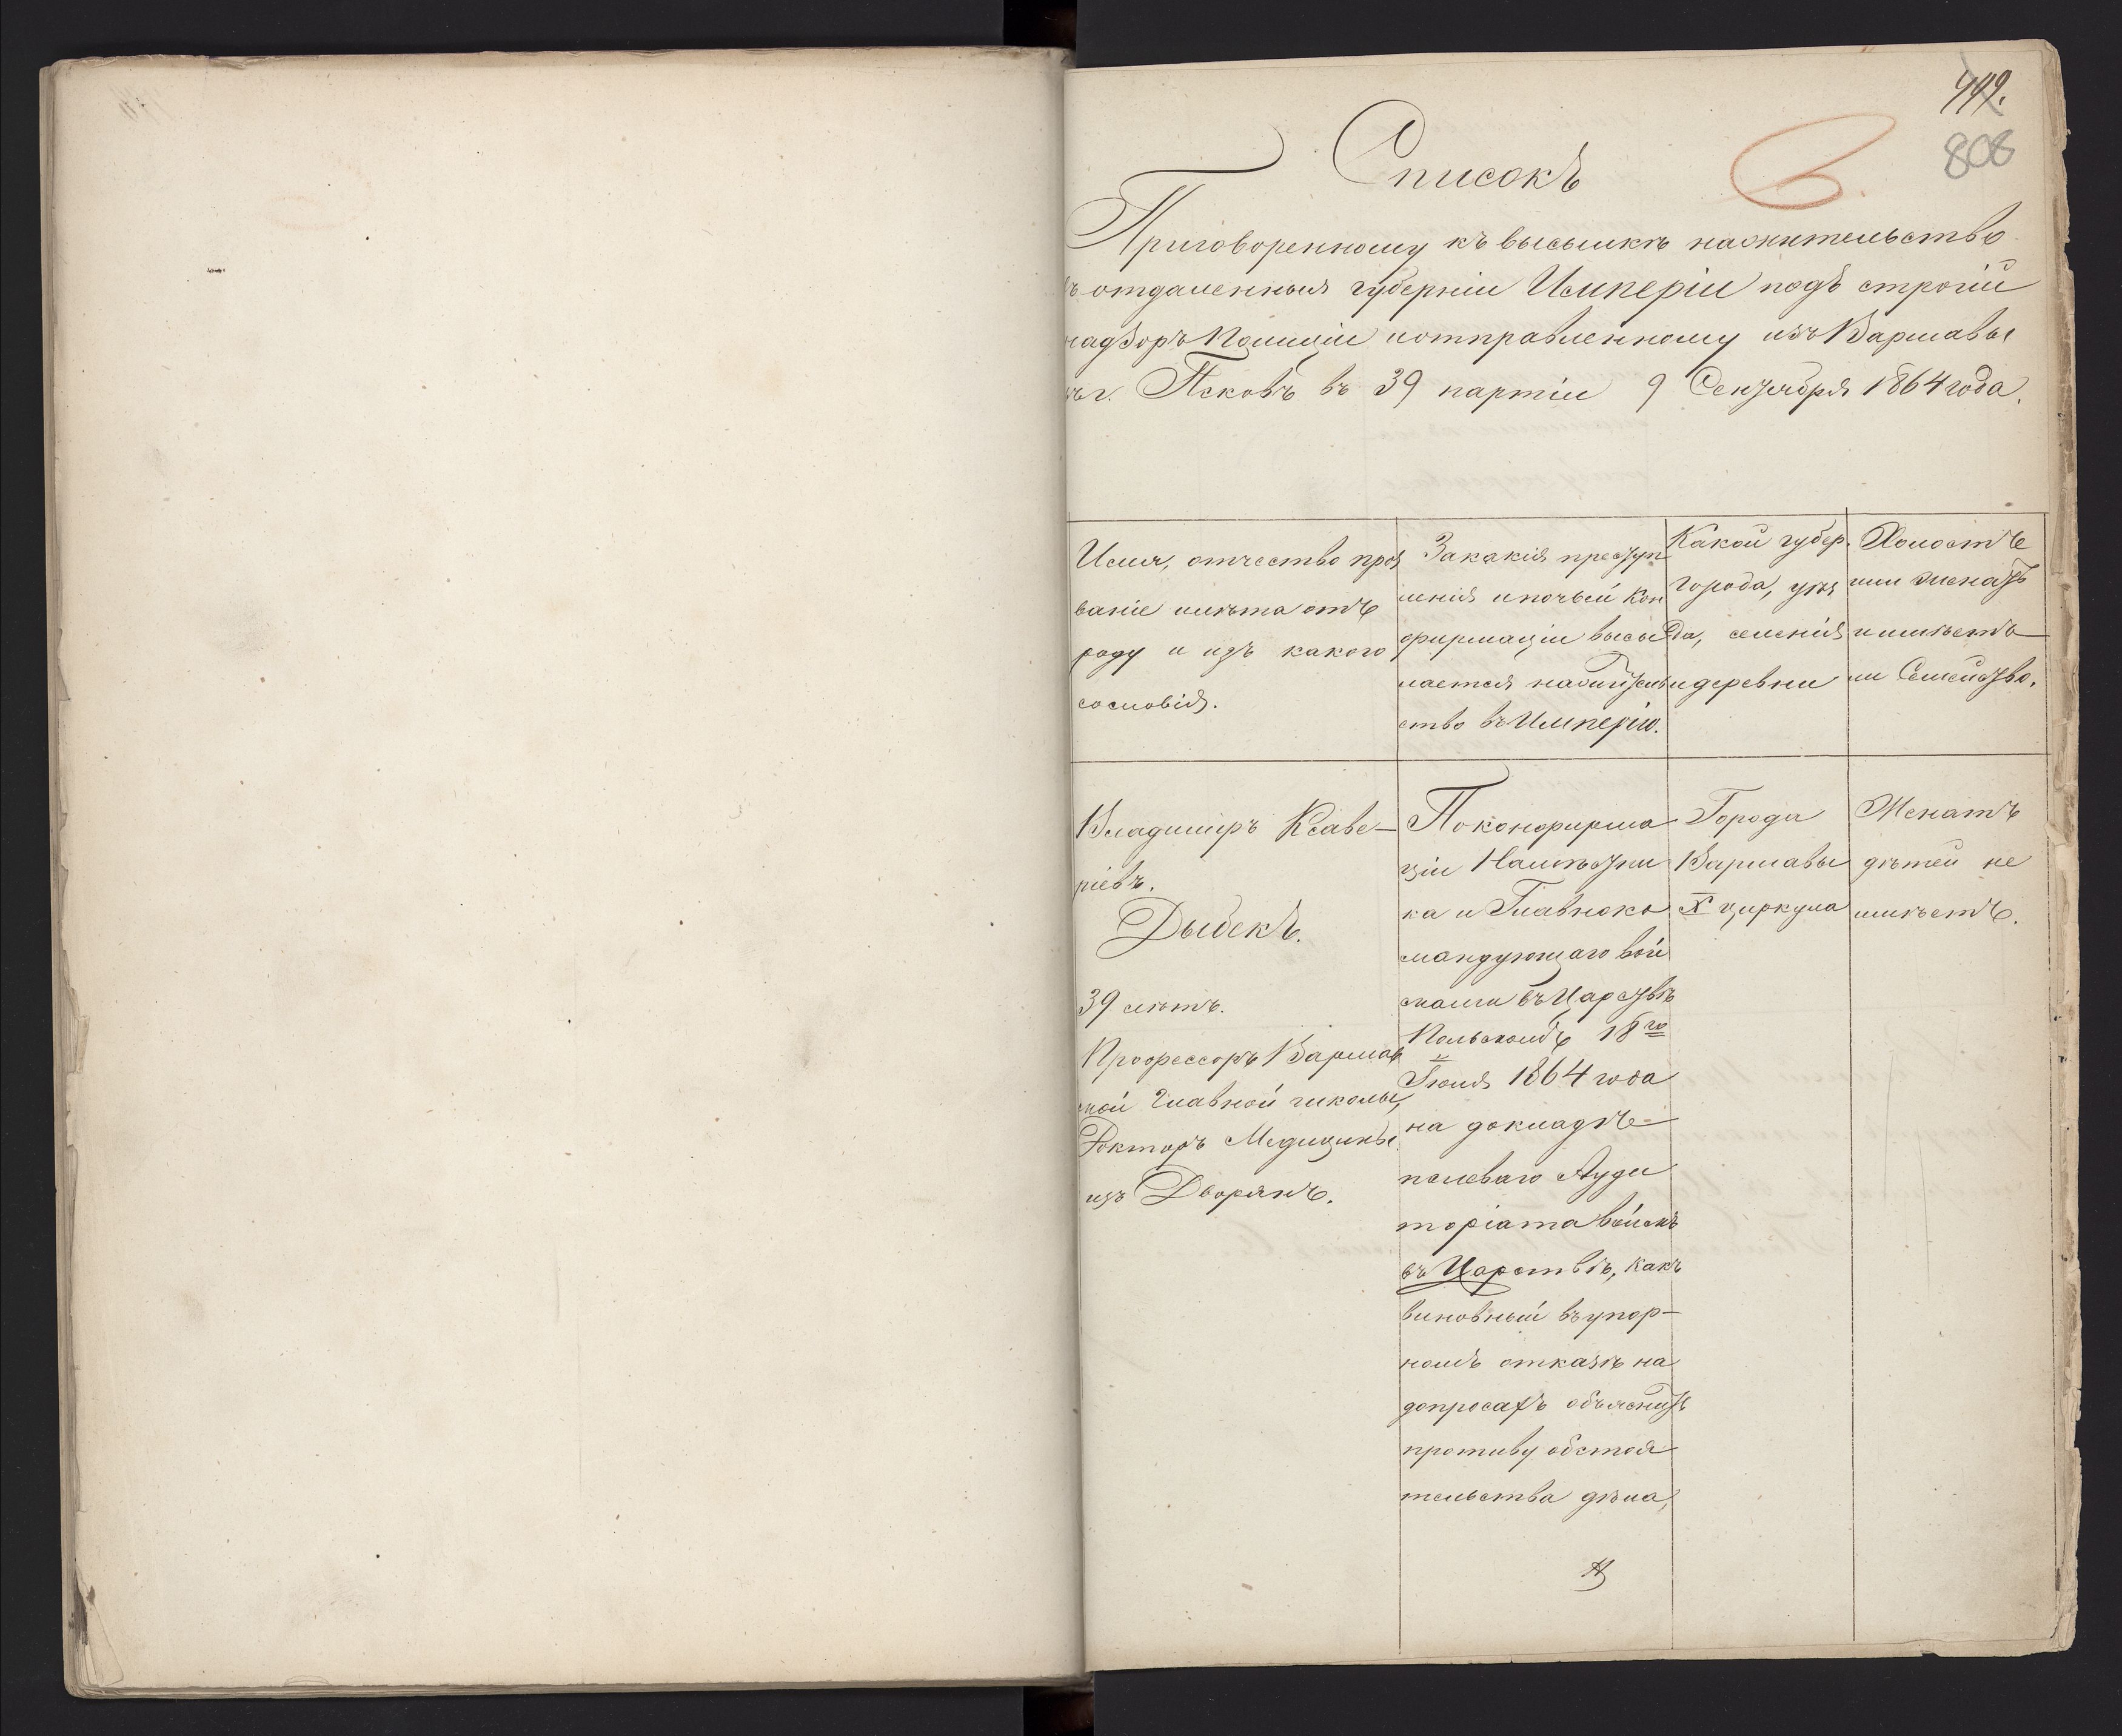 808
Списокъ
Приговоренному къ высылкѣ на жительство
въ отдаленныя губерніи Имперіи подъ строгій
надзоръ Полиціи и отправленному изъ Варшавы
въ г. Псковъ въ 39 партіи 9 Сентября 1864 года.
Имя, отчество проз
ваніе и лѣта отъ
роду и изъ какого
сословія.
За какія преступ
ленія и по чьей кон
фирмаціи высы
лается на житель
ство въ Имперію.
Какой губер.
города, уѣз
да, селенія
и деревни
Холостъ
или женатъ
и имѣетъ
ли Семейство.
Владиміръ Ксаве-
ріевъ.
Дыбекъ.
39 лѣтъ.
Профессоръ Варшав
ской Главной школы,
Докторъ Медицины
изъ Дворянъ.
По конфирма
ціи Намѣстни
ка и Главноко
мандующаго вой
сками въ Царствѣ
Польскомъ 18го
Іюля 1864 года
на докладѣ
полеваго Ауди
торіата войскъ
въ Царствѣ, какъ
виновный въ упор-
номъ отказѣ на
допросахъ объяснить
противу обстоя
тельства дѣла,
Города
Варшавы
X циркула
Женатъ
дѣтей не
имѣетъ.